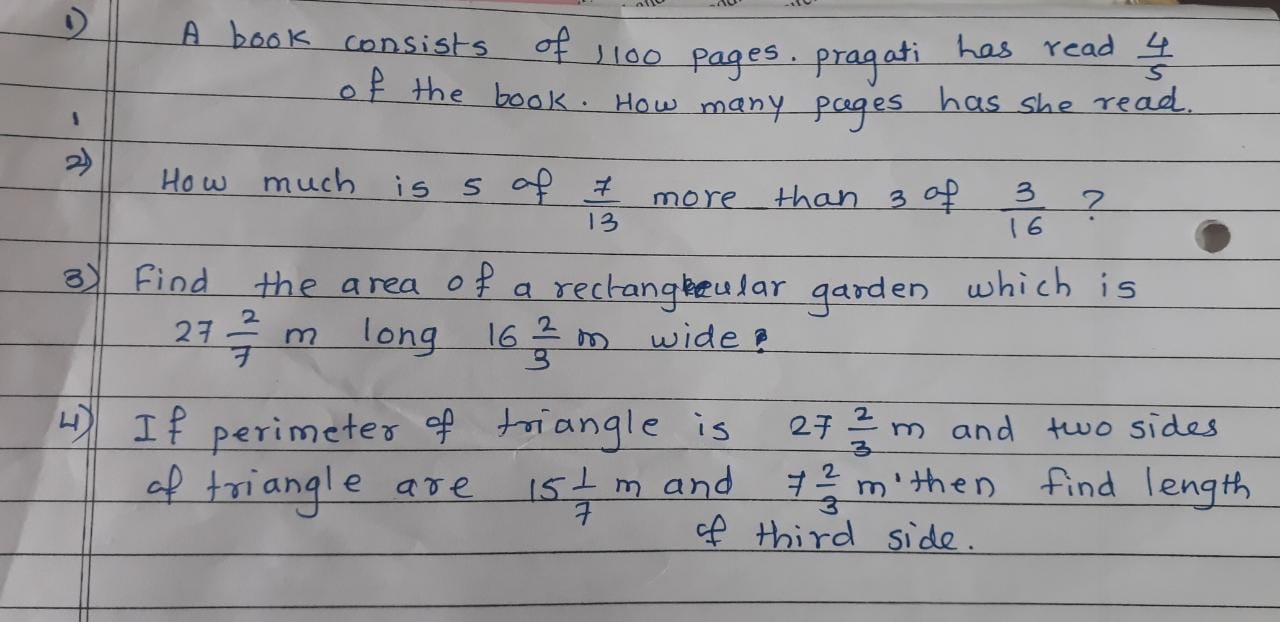 1) A book consists of 1100 pages. pragati has read 4/5
of the book. How many pages has she read.
1
2) How much is 5 of 7/13 more than 3 of 3/16 ?
3) Find the area of a rectangular garden which is
27 2/7 m long 16 2/3 m wide?
4) If perimeter of triangle is 27 2/3 m and two sides
of triangle are 15 1/7 m and 7 2/3 m then find length
of third side.